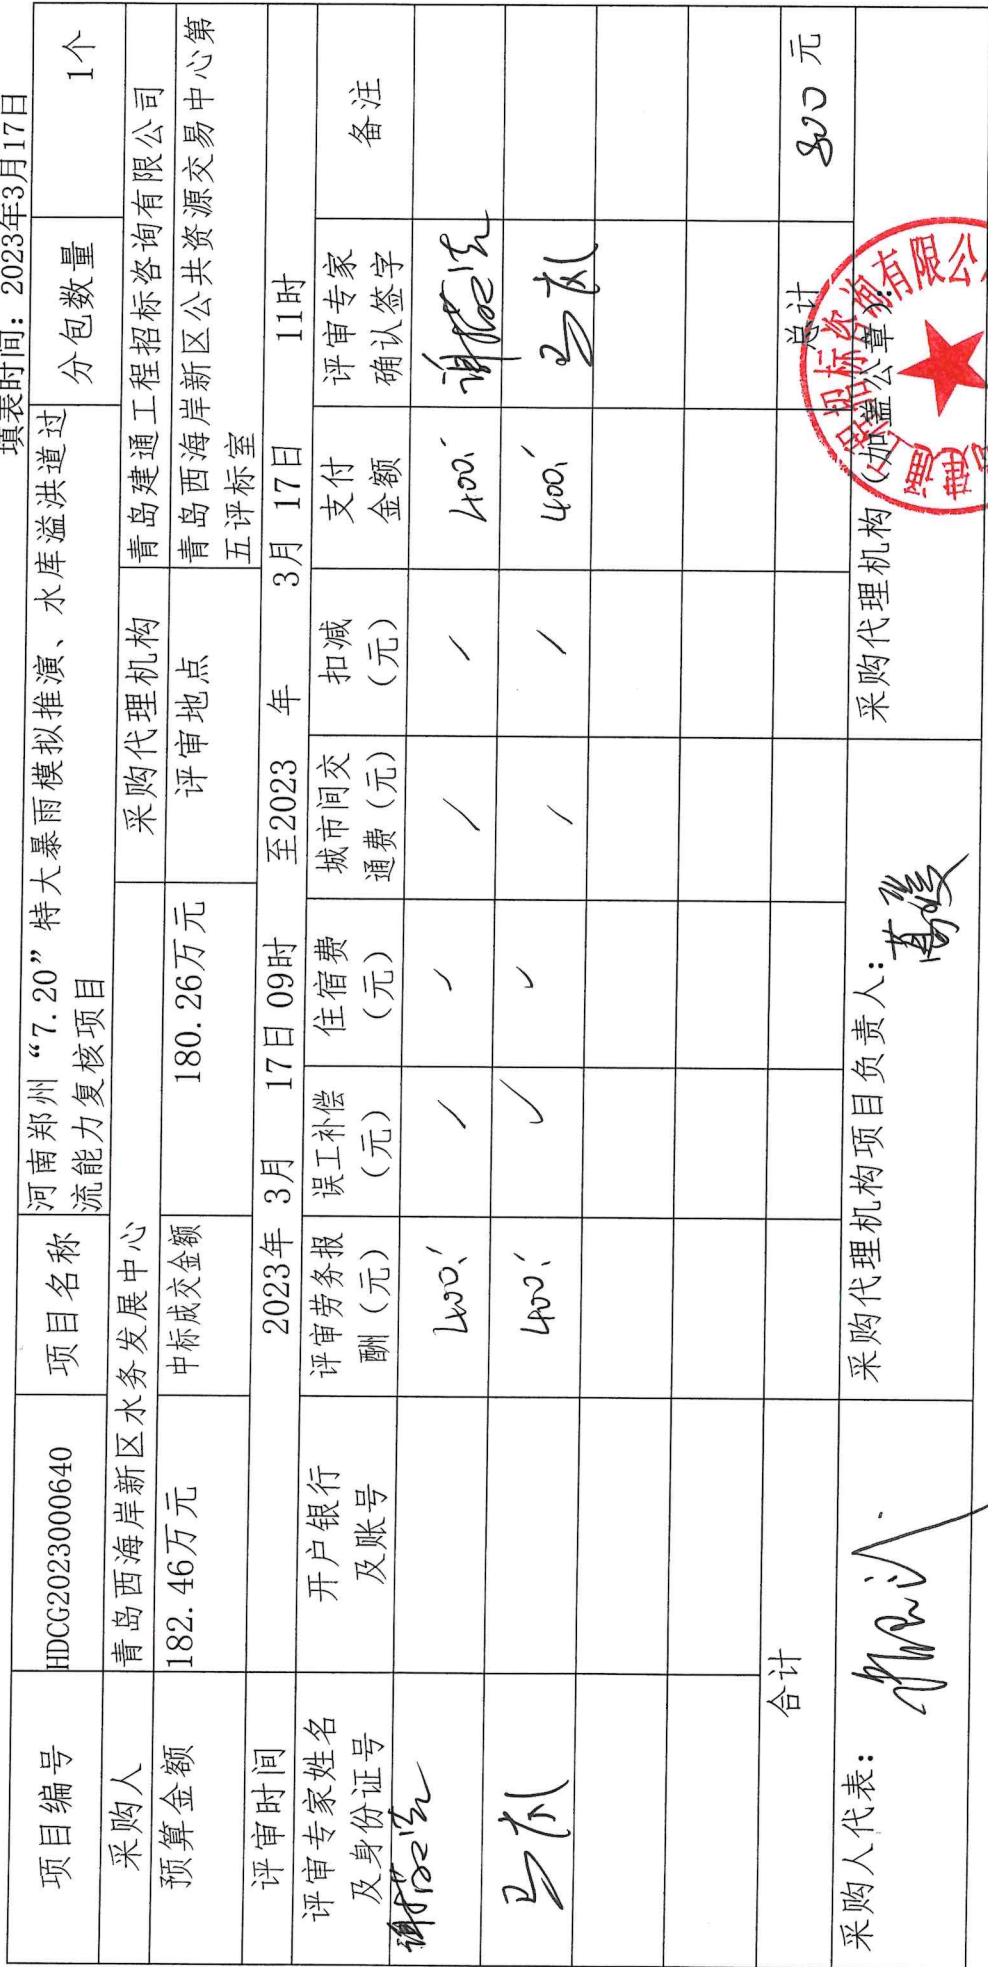 填表时间：2023年3月17日
项目编号 HDCG2023000640 项目名称 河南郑州“7.20”特大暴雨模拟推演、水库溢洪道过
流能力复核项目 分包数量 1个
采购人 青岛西海岸新区水务发展中心 采购代理机构 青岛建通工程招标咨询有限公司
预算金额 182.46万元 中标成交金额 180.26万元 评审地点 青岛西海岸新区公共资源交易中心第
五评标室
评审时间 2023年 3月 17日 09时 至2023 年 3月 17日 11时
评审专家姓名
及身份证号
开户银行
及账号
评审劳务报
酬（元）
误工补偿
（元）
住宿费
（元）
城市间交
通费（元）
扣减
（元）
支付
金额
评审专家
确认签字
备注
400 / / / / 400
400 / / / / 400
合计 总计 800 元
采购人代表：
采购代理机构项目负责人：
采购代理机构（加盖公章）：
建通工程招标咨询有限公